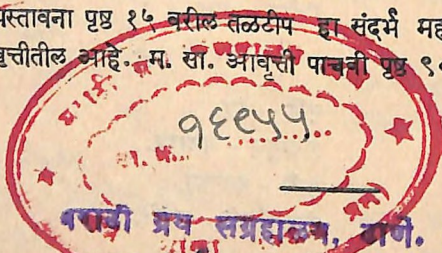 प्रस्तावना पृष्ठ १५ वरील तळटीप हा संदर्भ
वृत्तीतील आहे. म. सा. आवृत्ती पाचवी पृष्ठ
१६९५५
मराठी ग्रंथ संग्रहालय, ठाणे.